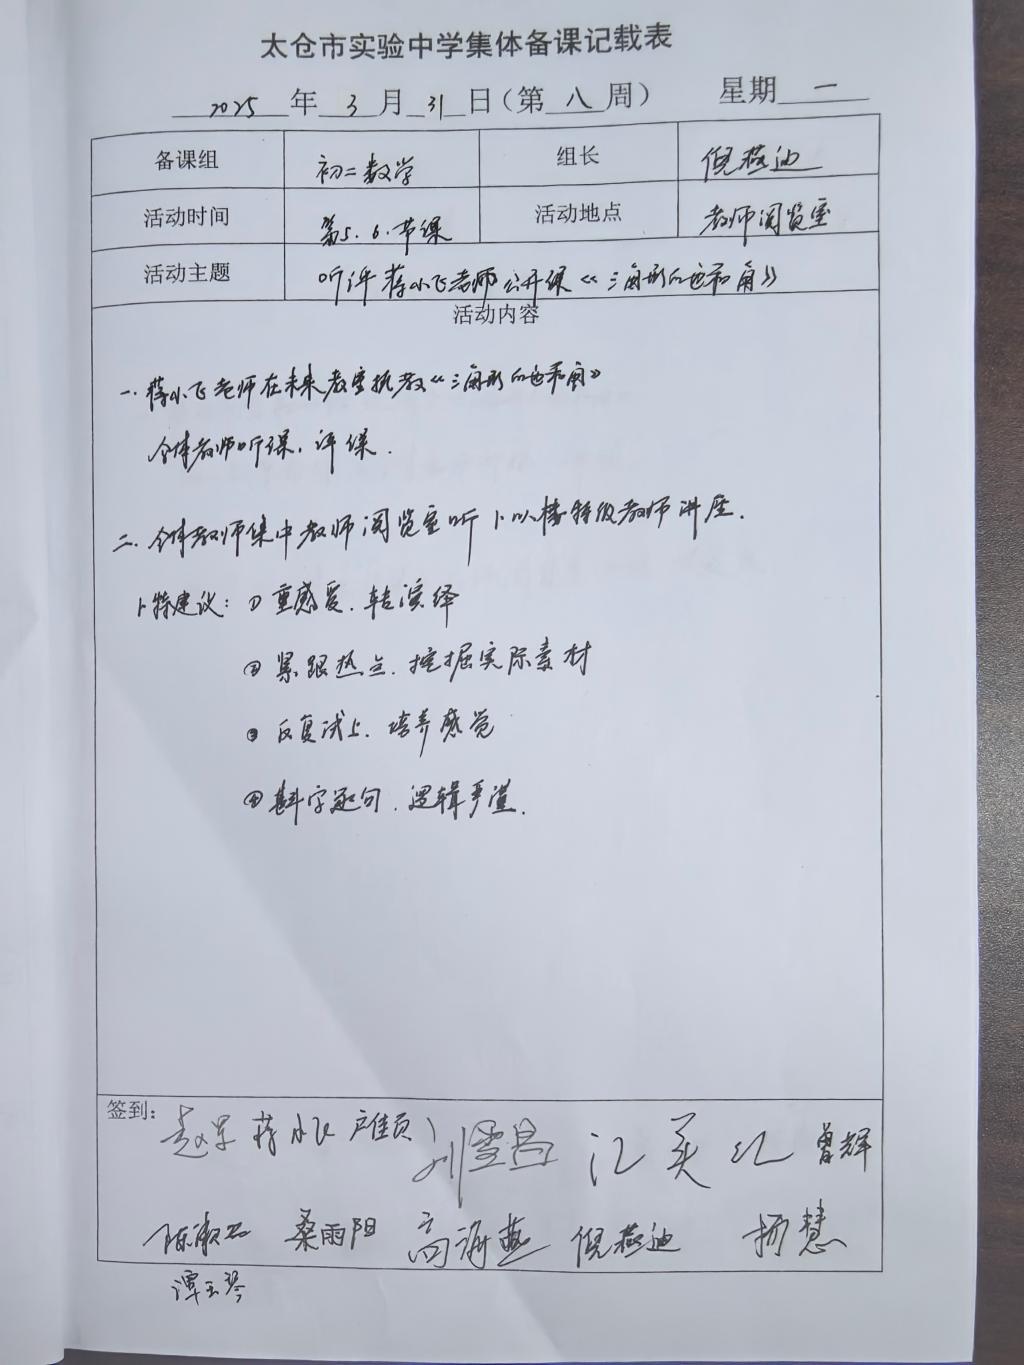 太仓市实验中学集体备课记载表
2025 年 3 月 31 日（第 八 周） 星期 一
备课组 初二数学 组长 倪燕迪
活动时间 第5.6.节课 活动地点 教师阅览室
活动主题 听评蒋小飞老师公开课《三角形的边和角》
活动内容
一.蒋小飞老师在未来教室执教《三角形的边和角》
全体教师听课，评课.
二.全体教师集中教师阅览室听卜以楼特级教师讲座.
卜特建议：① 重感受.轻演绎
② 紧跟热点.挖掘实际素材
③ 反复试上.培养感觉
④ 斟字逐句.逻辑严谨.
签到：
蒋小飞 刘雪昌 曾辉
桑雨阳 高海燕 倪燕迪 杨慧
谭玉琴